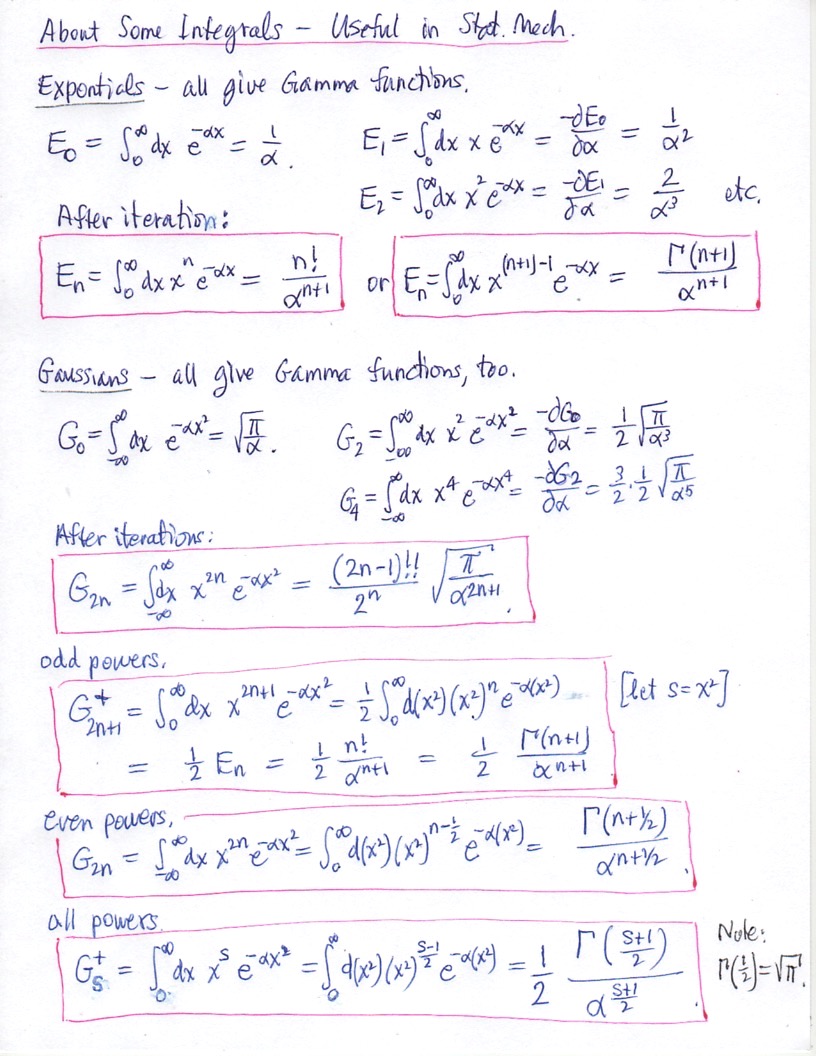 About Some Integrals – Useful in Stat. Mech.
Expontials – all give Gamma functions.
E₀ = ∫₀^∞ dx e^{-αx} = 1/α. E₁ = ∫₀^∞ dx x e^{-αx} = -∂E₀/∂α = 1/α²
E₂ = ∫₀^∞ dx x² e^{-αx} = -∂E₁/∂α = 2/α³ etc.
After iteration:
Eₙ = ∫₀^∞ dx xⁿ e^{-αx} = n!/α^{n+1} or Eₙ = ∫₀^∞ dx x^{(n+1)-1} e^{-αx} = Γ(n+1)/α^{n+1}
Gaussians – all give Gamma functions, too.
G₀ = ∫_{-∞}^∞ dx e^{-αx²} = √(π/α). G₂ = ∫_{-∞}^∞ dx x² e^{-αx²} = -∂G₀/∂α = 1/2 √(π/α³)
G₄ = ∫_{-∞}^∞ dx x⁴ e^{-αx⁴} = -∂G₂/∂α = 3/2 · 1/2 √(π/α⁵)
After iterations:
G_{2n} = ∫_{-∞}^∞ dx x^{2n} e^{-αx²} = (2n-1)!!/2ⁿ √(π/α^{2n+1}).
odd powers,
G⁺_{2n+1} = ∫₀^∞ dx x^{2n+1} e^{-αx²} = 1/2 ∫₀^∞ d(x²) (x²)ⁿ e^{-α(x²)} [let s=x²]
= 1/2 Eₙ = 1/2 n!/α^{n+1} = 1/2 Γ(n+1)/α^{n+1}
even powers,
G_{2n} = ∫_{-∞}^∞ dx x^{2n} e^{-αx²} = ∫₀^∞ d(x²) (x²)^{n-1/2} e^{-α(x²)} = Γ(n+1/2)/α^{n+1/2}.
all powers.
G⁺_s = ∫₀^∞ dx x^s e^{-αx²} = ∫₀^∞ d(x²) (x²)^{(s-1)/2} e^{-α(x²)} = 1/2 Γ((s+1)/2)/α^{(s+1)/2}.
Note:
Γ(1/2)=√π.